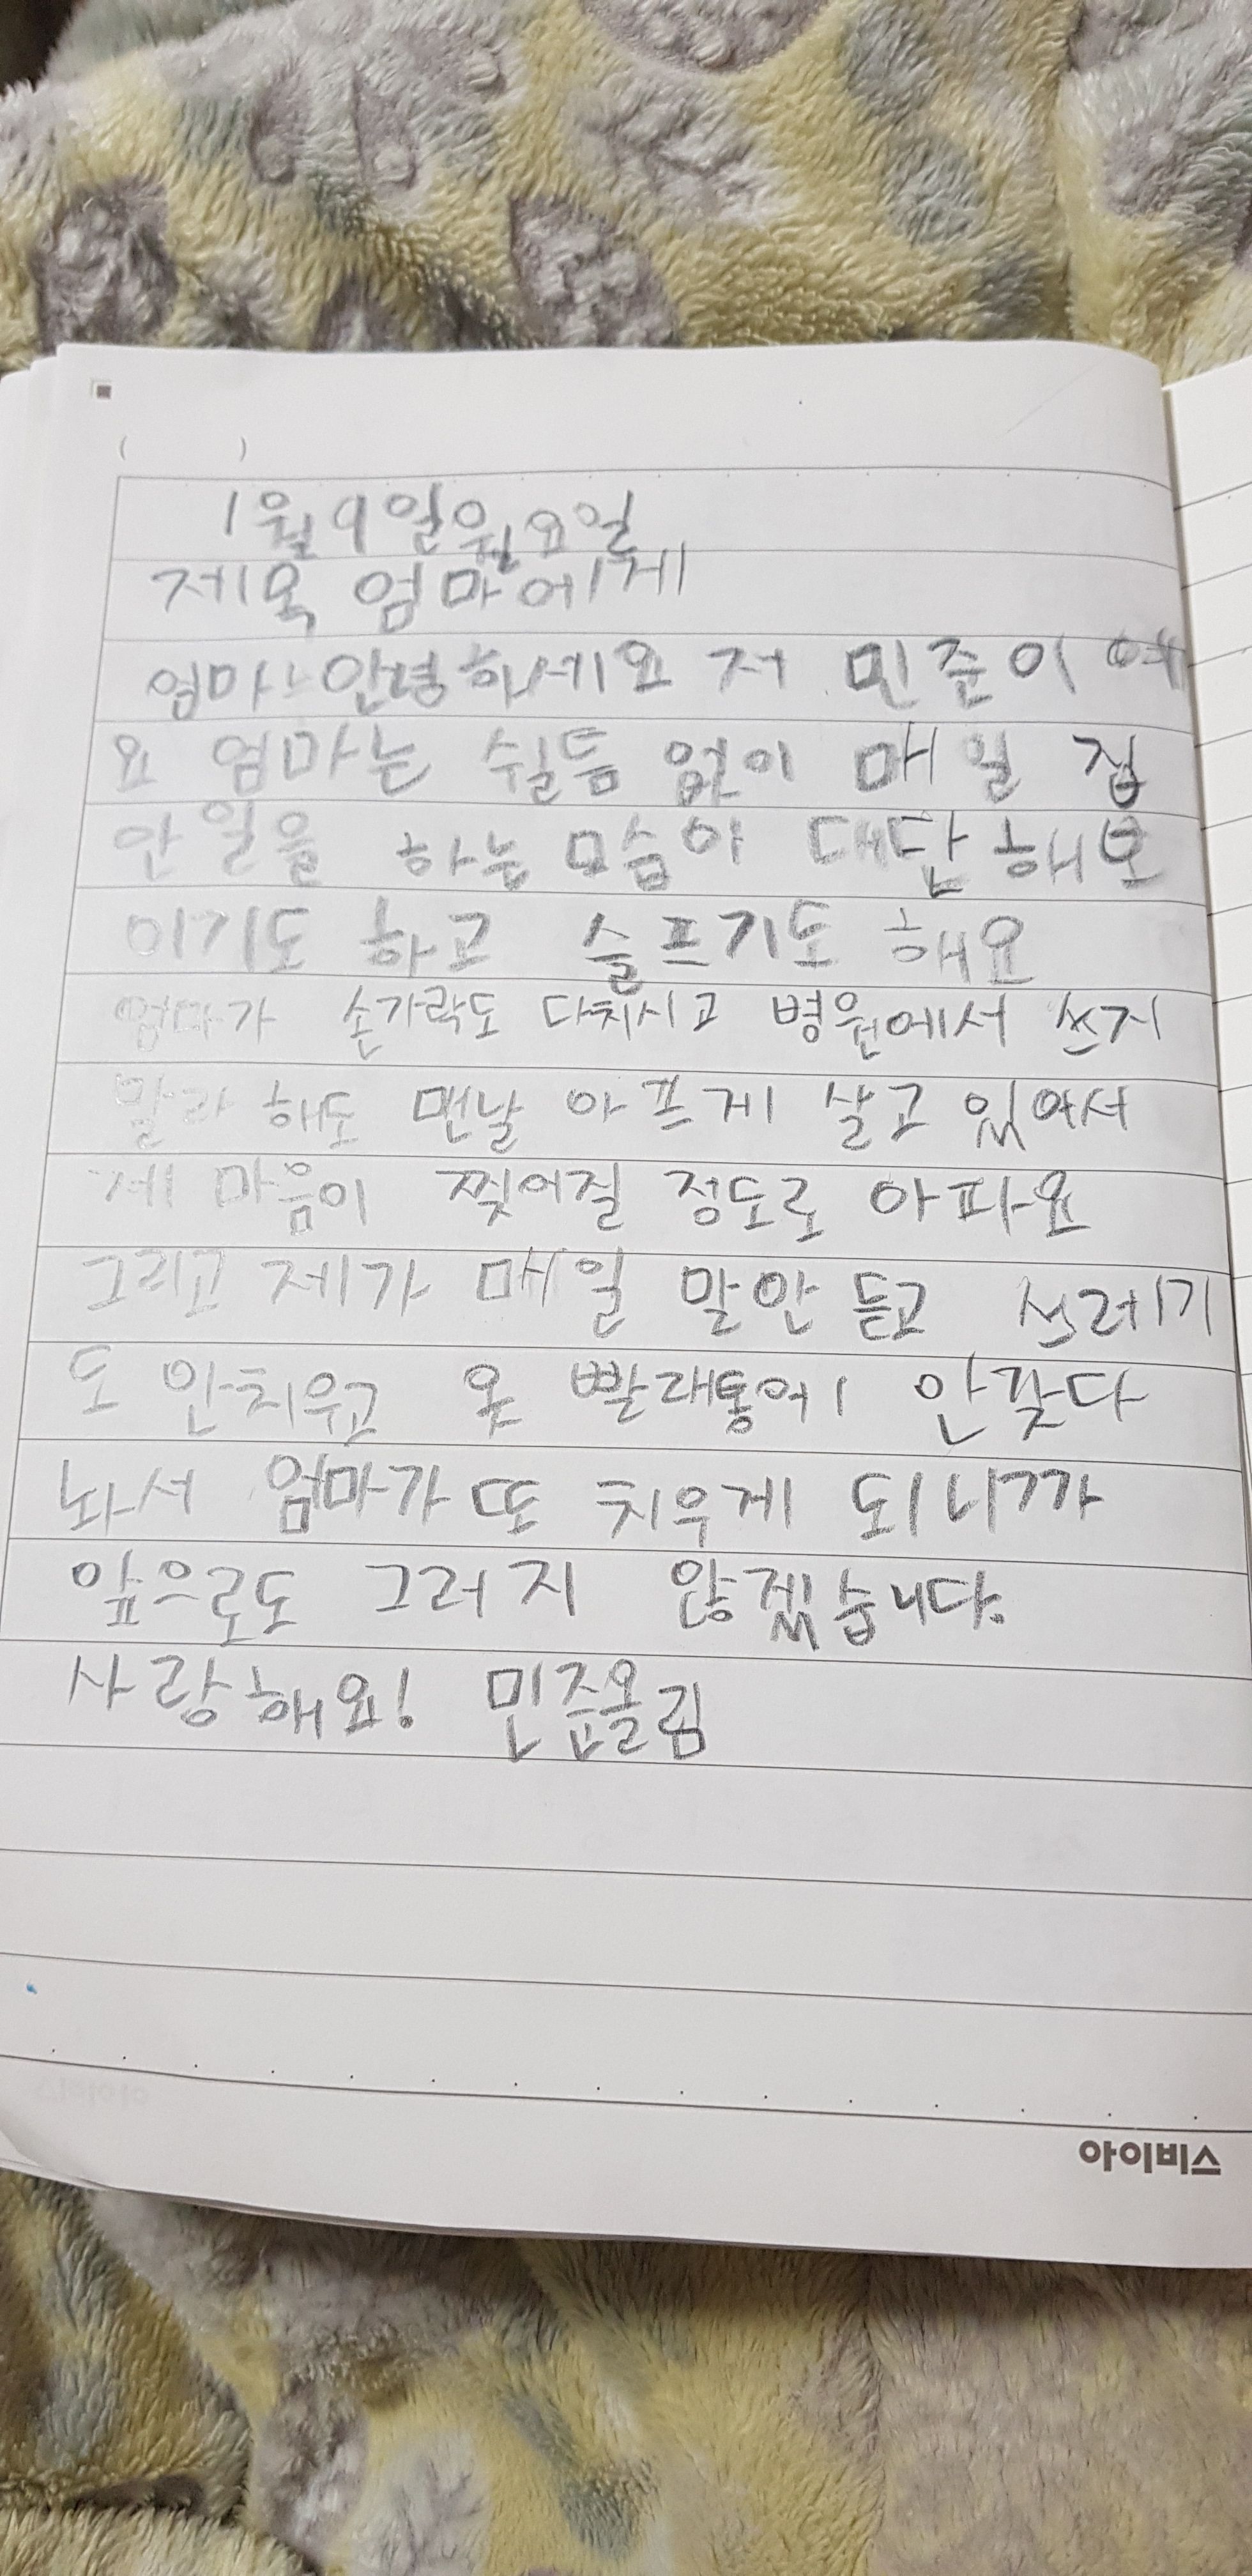 ( )
1월9일월요일
제목 엄마에게
엄마 안녕하세요 저 민준이예
요 엄마는 쉴틈 없이 매일 집
안일을 하는 모습이 대답해보
이기도 하고 슬프기도 해요
엄마가 손가락도 다치시고 병원에서 쓰지
말라 해도 맨날 아프게 살고 있어서
제 마음이 찢어질 정도로 아파요
그리고 제가 매일 말안 듣고 쓰레기
도 안치우고 옷 빨래통에 안갖다
놔서 엄마가 또 치우게 되니까
앞으로도 그러지 않겠습니다.
사랑해요! 민준올림
아이비스